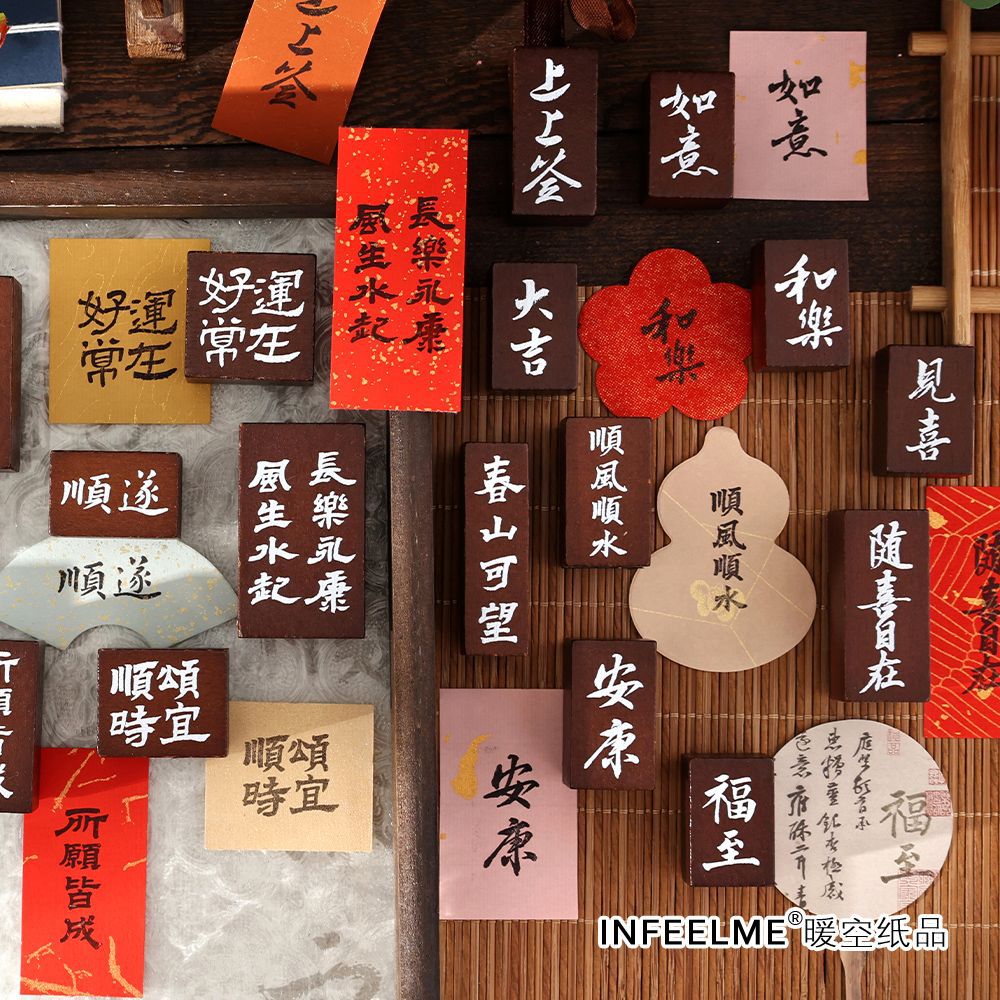 上上签
上上签
如意
如意
長樂永康
風生水起
好運
常在
好運
常在
大吉
和樂
和樂
見喜
順遂
順遂
長樂永康
風生水起
春山可望
順風順水
順風順水
随喜自在
随喜自在
所願皆成
所願皆成
順頌
時宜
順頌
時宜
安康
安康
福至
福至
INFEELME®暖空纸品